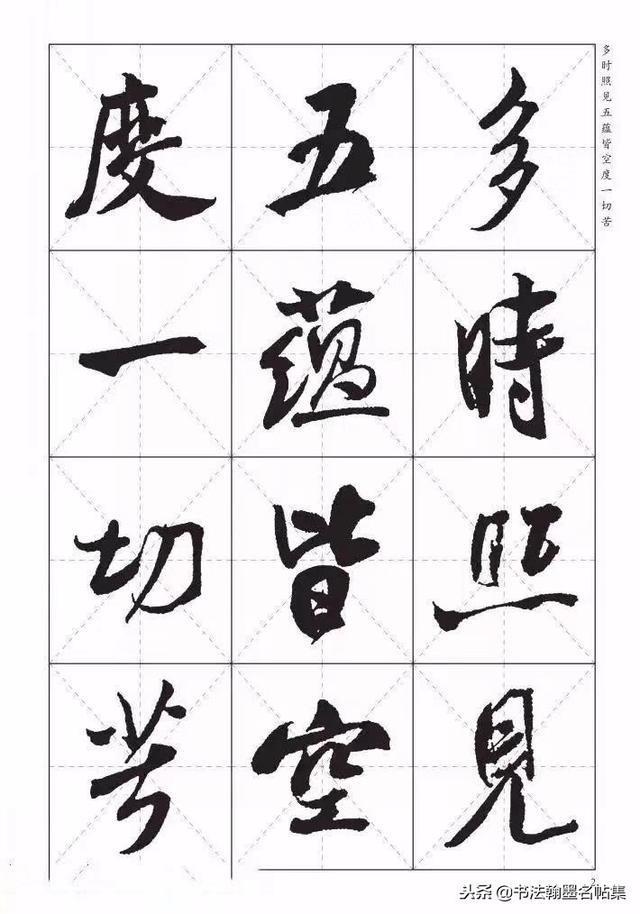 多时照见五蕴皆空度一切苦
多時照見
五蕴皆空
度一切苦
2
头条 @书法翰墨名帖集